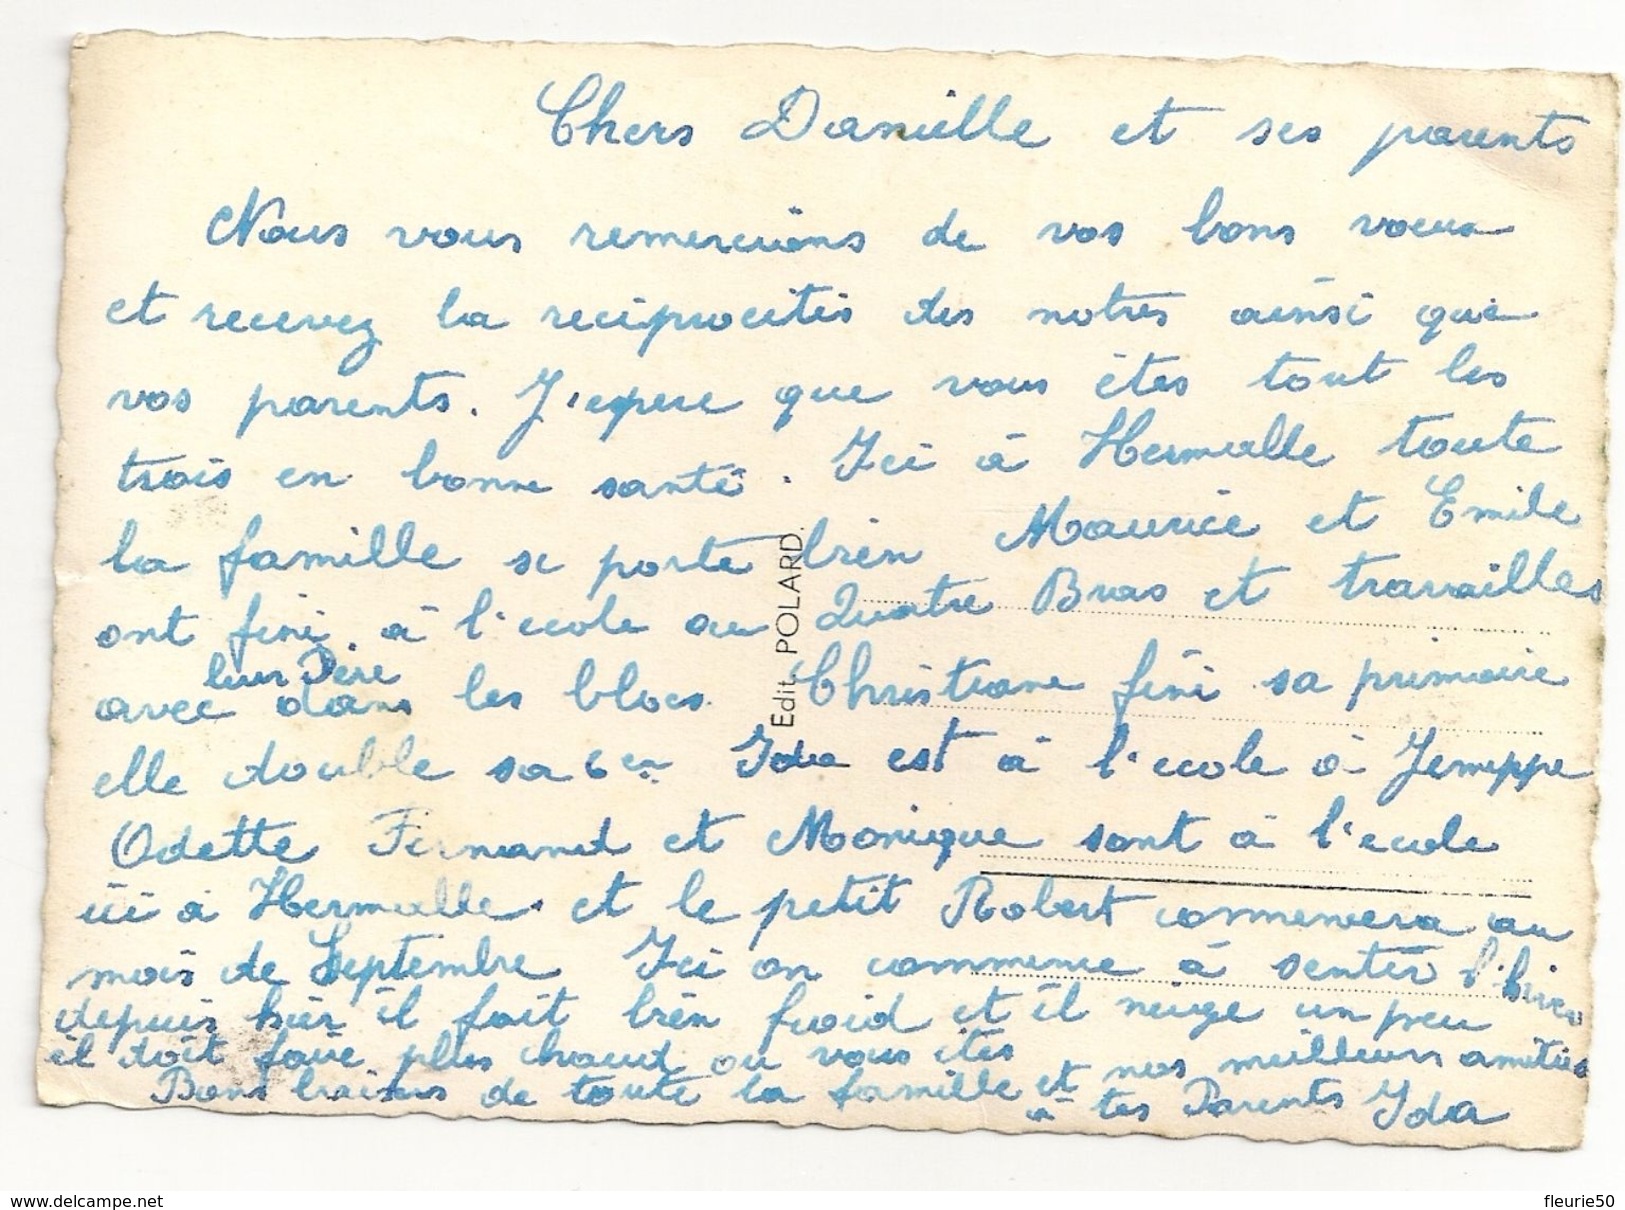 Chers Danielle et ses parents
Nous vous remercions de vos bons voeux
et recevez la réciprocités des notres ainsi que
vos parents. J'espere que vous êtes tout les
trois en bonne santé. Ici à Hermalle toute
la famille se porte bien Maurice et Emile
ont fini à l'ecole au Quatre Bras et travailles
leur Père
avec dans les blocs. Christiane fini sa primaire
elle double sa 6en Ida est à l'ecole à Jemeppe
Odette Fernand et Monique sont à l'ecole
ici à Hermalle et le petit Robert commencera au
mois de Septembre Ici on commence à sentir l'hiver
depuis hier il fait bien froid et il neige un peu
il doit faire plus chaud ou vous êtes et nos meilleurs amitiés
Bons baisers de toute la famille à tes Parents Ida
Edit. POLARD.
www.delcampe.net
fleurie50